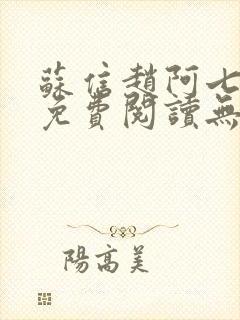 蘇信趙阿七
免費閱讀無
陽高美